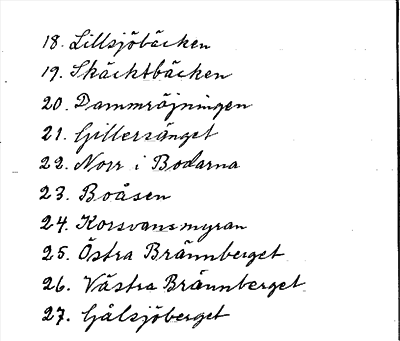 18. Lillsjöbäcken
19. Skäcktbäcken
20. Dammröjningen
21. Gillersänget
22. Norr i Bodarna
23. Boåsen
24. Korsvansmyran
25. Östra Brännberget
26. Västra Brännberget
27. Gålsjöberget